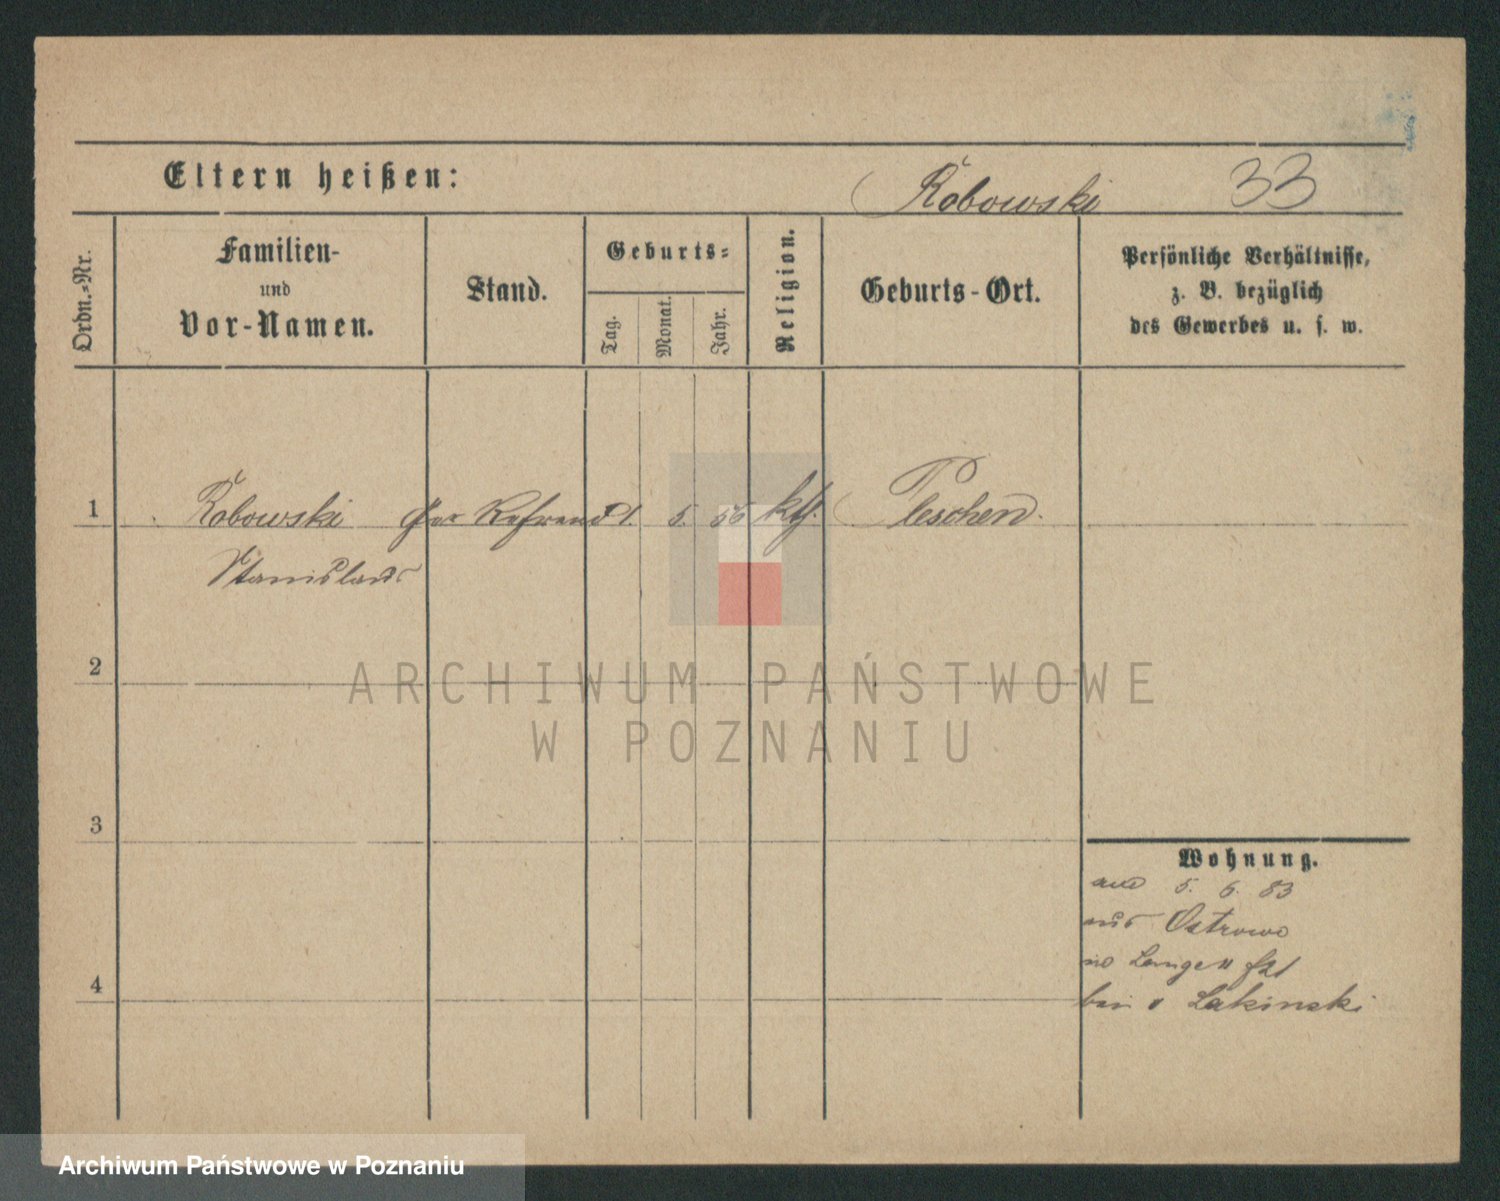 Eltern heißen:
Robowski 33
Ordn.-Nr.
Familien-
und
Vor-Namen.
Stand.
Geburts-
Tag.
Monat.
Jahr.
Religion.
Geburts-Ort.
Persönliche Verhältnisse,
z. B. bezüglich
des Gewerbes u. s. w.
1 Robowski 1. 5. 56 kth. Pleschen.
Stanislaus
2
3
4
Wohnung.
5. 6. 83
aus Ostrowo
Lange
bei v Lakinski
ARCHIWUM PAŃSTWOWE
W POZNANIU
Archiwum Państwowe w Poznaniu